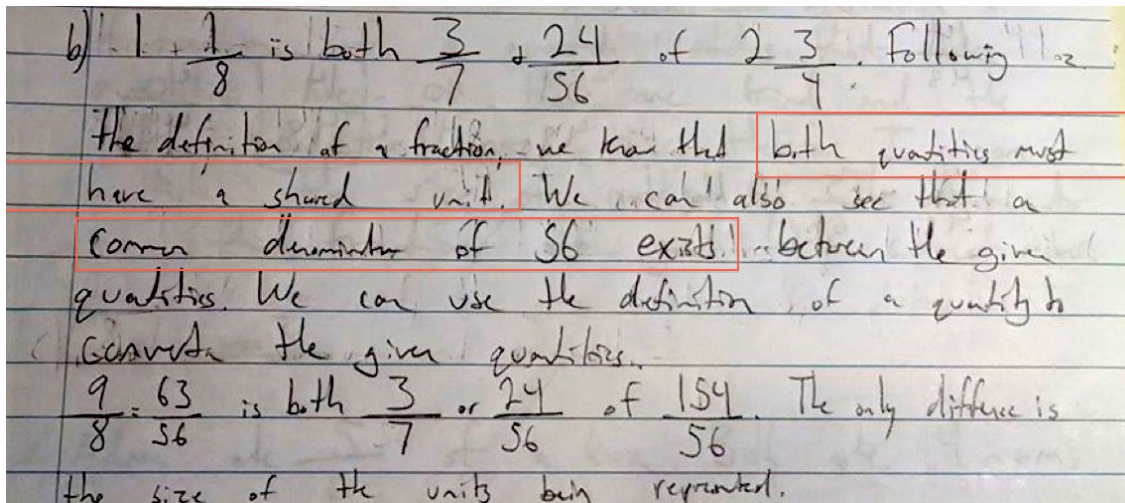 b) 1 + 1/8 is both 3/7 + 24/56 of 2 3/4. Following
the definition of a fraction, we know that both quantities must
have a shared unit. We can also see that a
common denominator of 56 exists between the given
quantities. We can use the definition of a quantity to
convert the given quantities.
9/8 = 63/56 is both 3/7 or 24/56 of 154/56. The only difference is
the size of the units being represented.